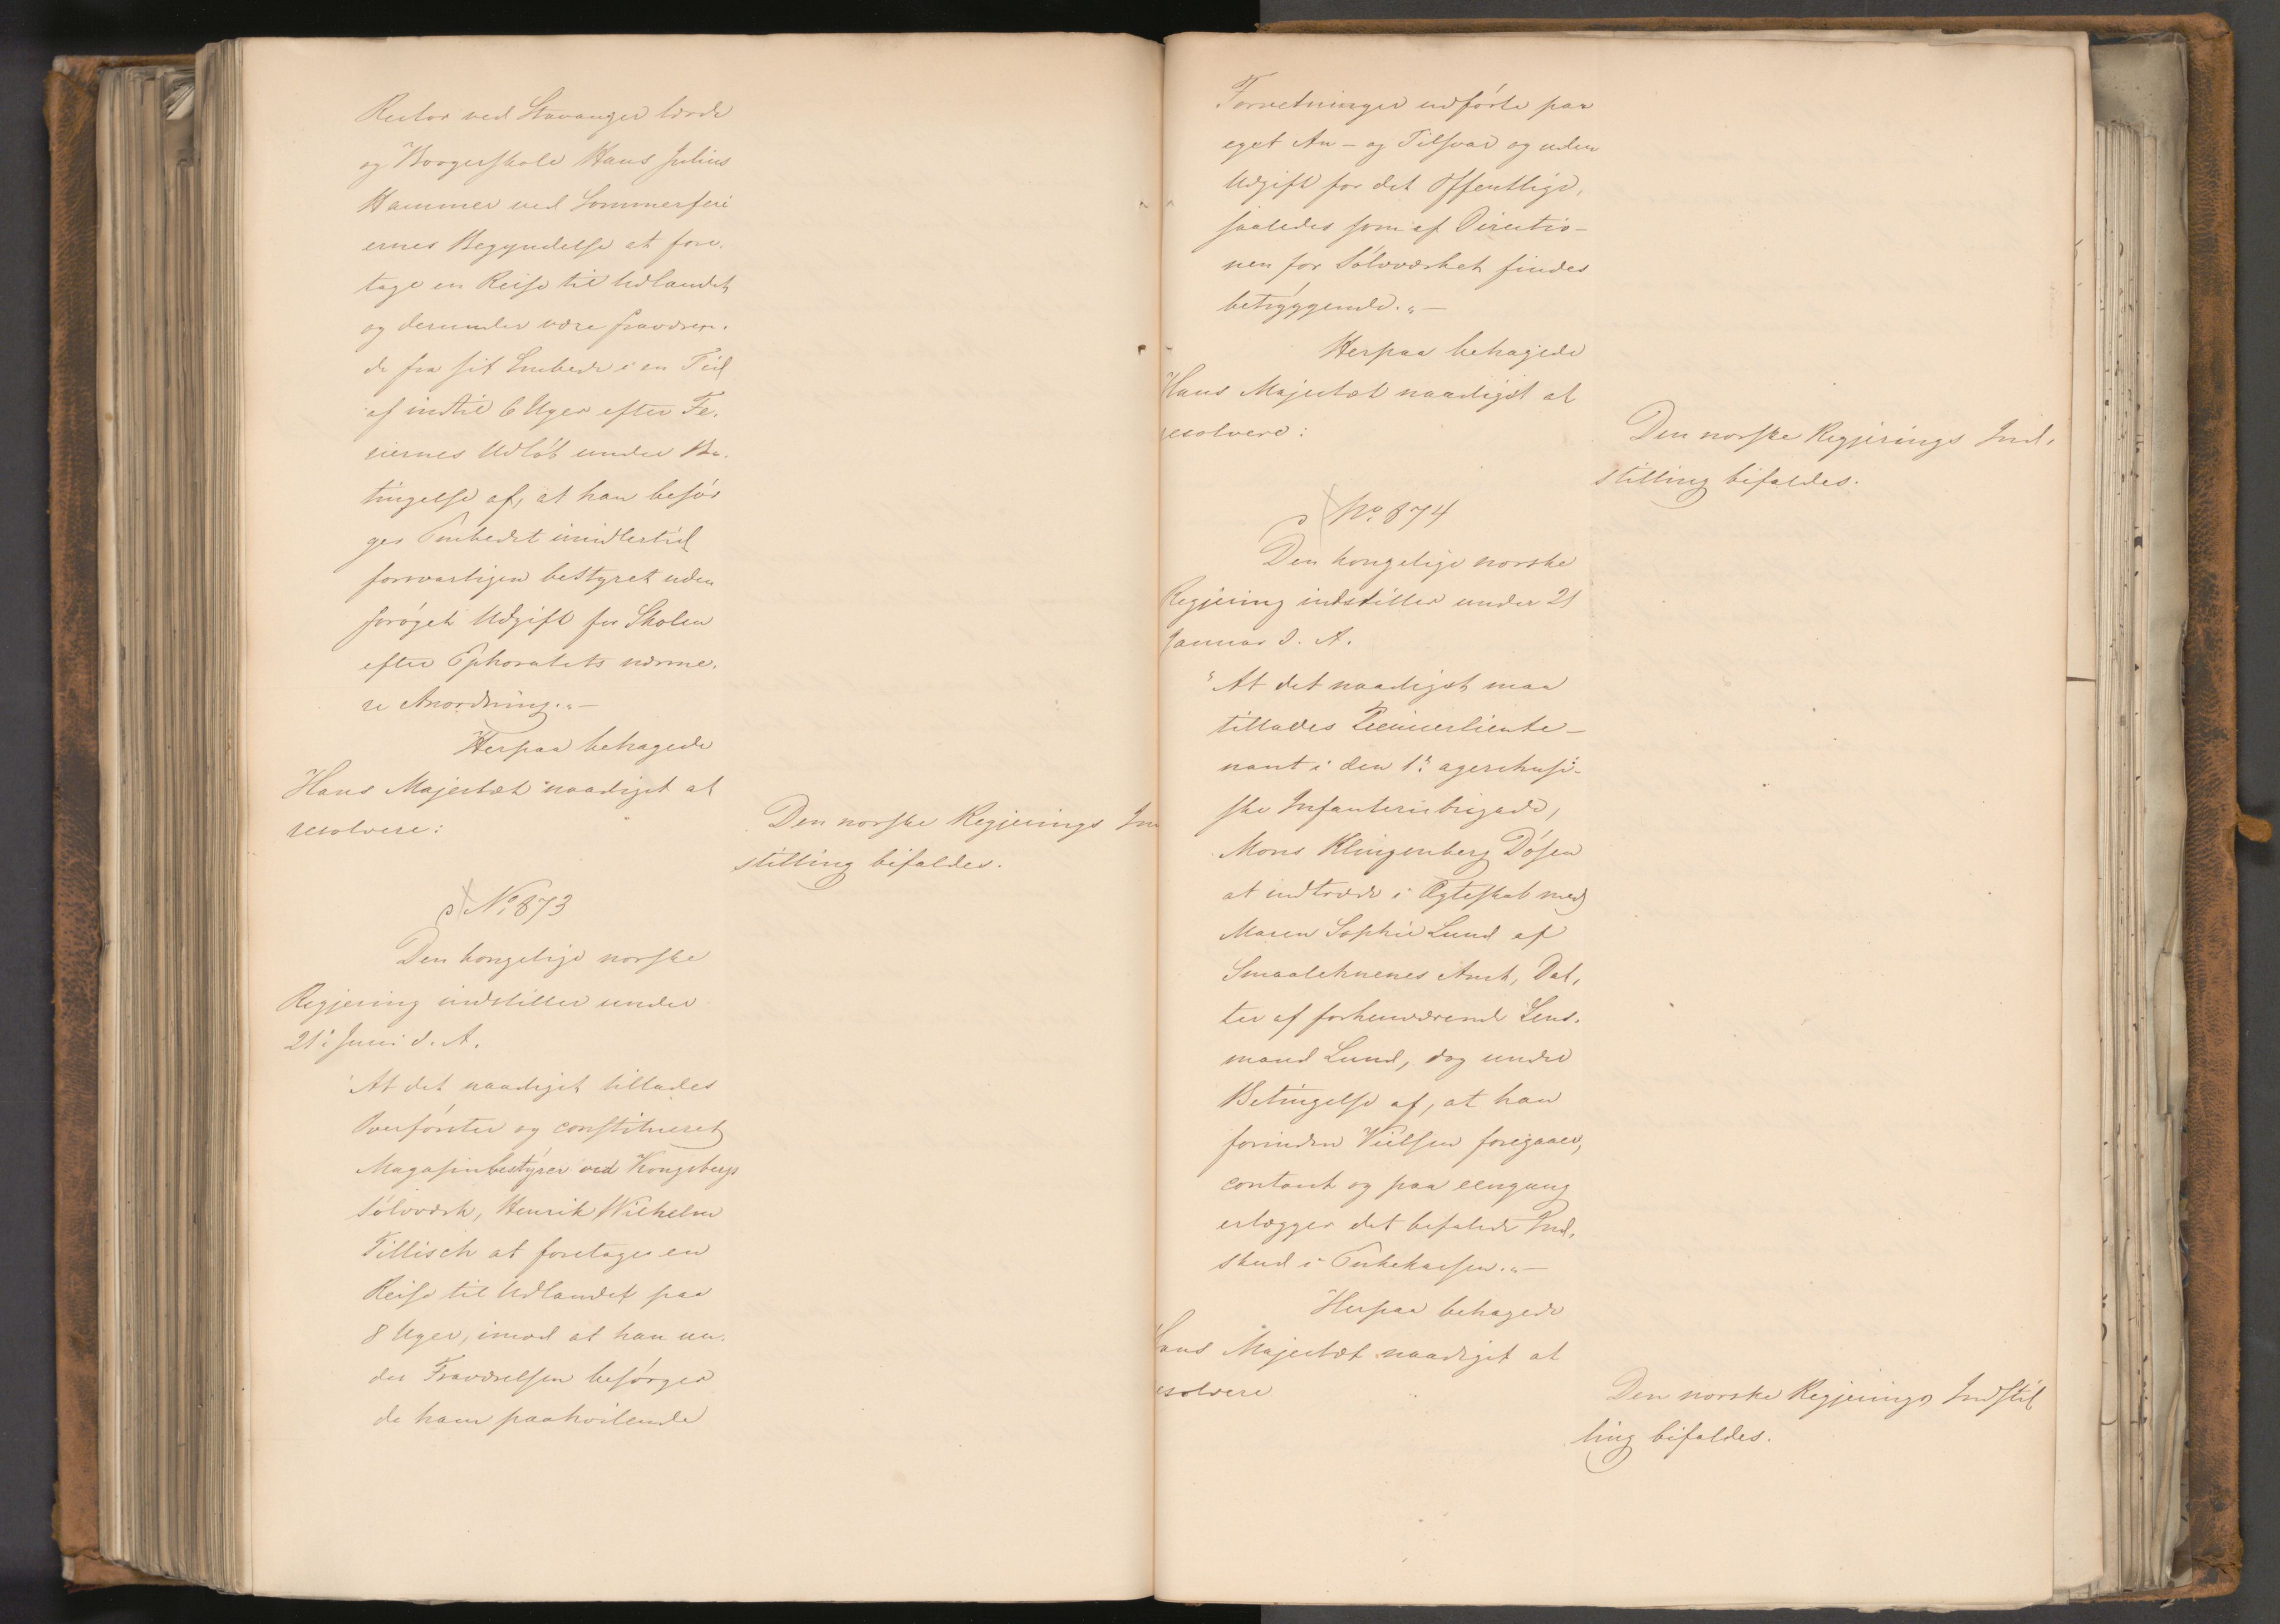 Rector ved Stavanger lærde
og Borgerskole Hans Julius
Hammer ved Sommerferi
ernes Begyndelse at fore-
tage en Reise til Udlandet
og derunder være fraværen-
de fra sit Embede i en Tid
af indtil 6 Uger efter Fe-
riernes Udløb under Be-
tingelse af, at han besør
ger Embedet imidlertid
forsvarligen bestyret uden
forøget Udgift for Skolen
efter Ephoratets nærme-
re Anordning."—
Herpaa behagede
Hans Majestæt naadigst at
resolvere:
Den norske Regjerings In
stilling bifaldes.
No. 873
Den kongelige norske
Regjering indstiller under
21. Juni d. A.
"At det naadigst tillades
Overførster og constitueret
Magasinbestyrer ved Kongsbergs
Sølvværk, Henrik Wilhelm
Tillisch at foretage en
Reise til Udlandet paa
8 Uger, imod at han un-
der Fraværelsen besørger
de ham paahvilende
Forretninger udførte paa
eget An- og Tilsvar og uden
Udgift for det Offentlige,
saaledes som af Directio-
nen for Sølvværket findes
betryggende."—
Herpaa behagede
Hans Majestæt naadigst at
resolvere:
Den norske Regjerings Ind-
stilling bifaldes.
No. 874
Den kongelige norske
Regjering indstiller under 21
Januar d. A.
"At det naadigst maa
tillades Premierlieute-
nant i den 1. agershusi-
ske Infanteribrigade,
Mons Klingenberg Døsen
at indtræde i Ægteskab med
Maren Sophie Lund af
Smaalehnenes Amt, Dat-
ter af forhenværende Lens-
mand Lund, dog under
Betingelse af, at han
forinden Vielsen foregaaer,
contant og paa eengang
erlægger det befalede Ind-
skud i Enkekassen."—
Herpaa behagede
Hans Majestæt naadigst at
esolvere
Den norske Regjerings Indstil
ling bifaldes.